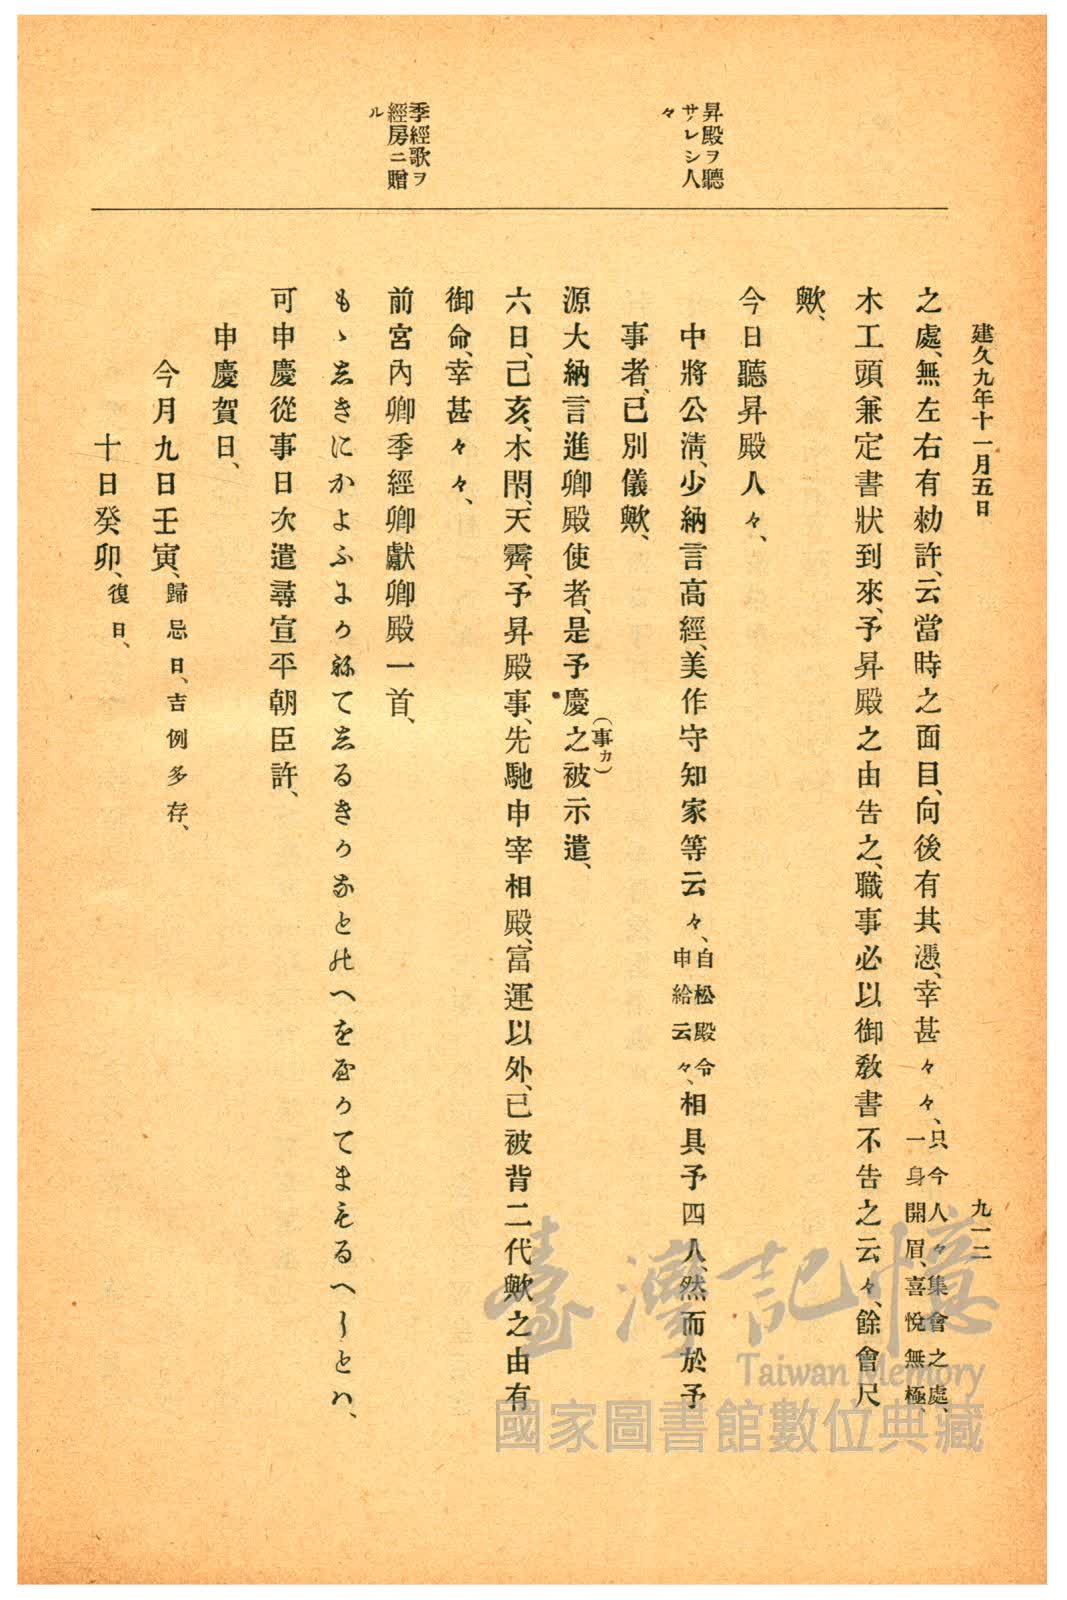 建久九年十一月五日
九一二
昇殿ヲ聽
サレシ人
々
季經歌ヲ
經房ニ贈
ル
之處、無左右有勅許、云當時之面目、向後有其憑、幸甚々々、只今人々集會之處、一身開眉、喜悅無極、
木工頭兼定書狀到來、予昇殿之由告之、職事必以御敎書不告之云々、餘會尺
歟、
今日聽昇殿人々、
中將公淸、少納言高經、美作守知家等云々、自松殿令申給云々、相具予四人、然而於予
事者、已別儀歟、
源大納言進卿殿使者、是予慶之(事カ)被示遣、
六日、己亥、木閑、天霽、予昇殿事、先馳申宰相殿、富運以外、已被背二代歟之由有
御命、幸甚々々、
前宮內卿季經卿獻卿殿一首、
もゝ志きにかよふにかねて志るきかなとのへをやかてまもるへしとハ、
可申慶從事日次遣尋宣平朝臣許、
申慶賀日、
今月九日壬寅、歸忌日、吉例多存、
十日癸卯、復日、
臺灣記憶
Taiwan Memory
國家圖書館數位典藏